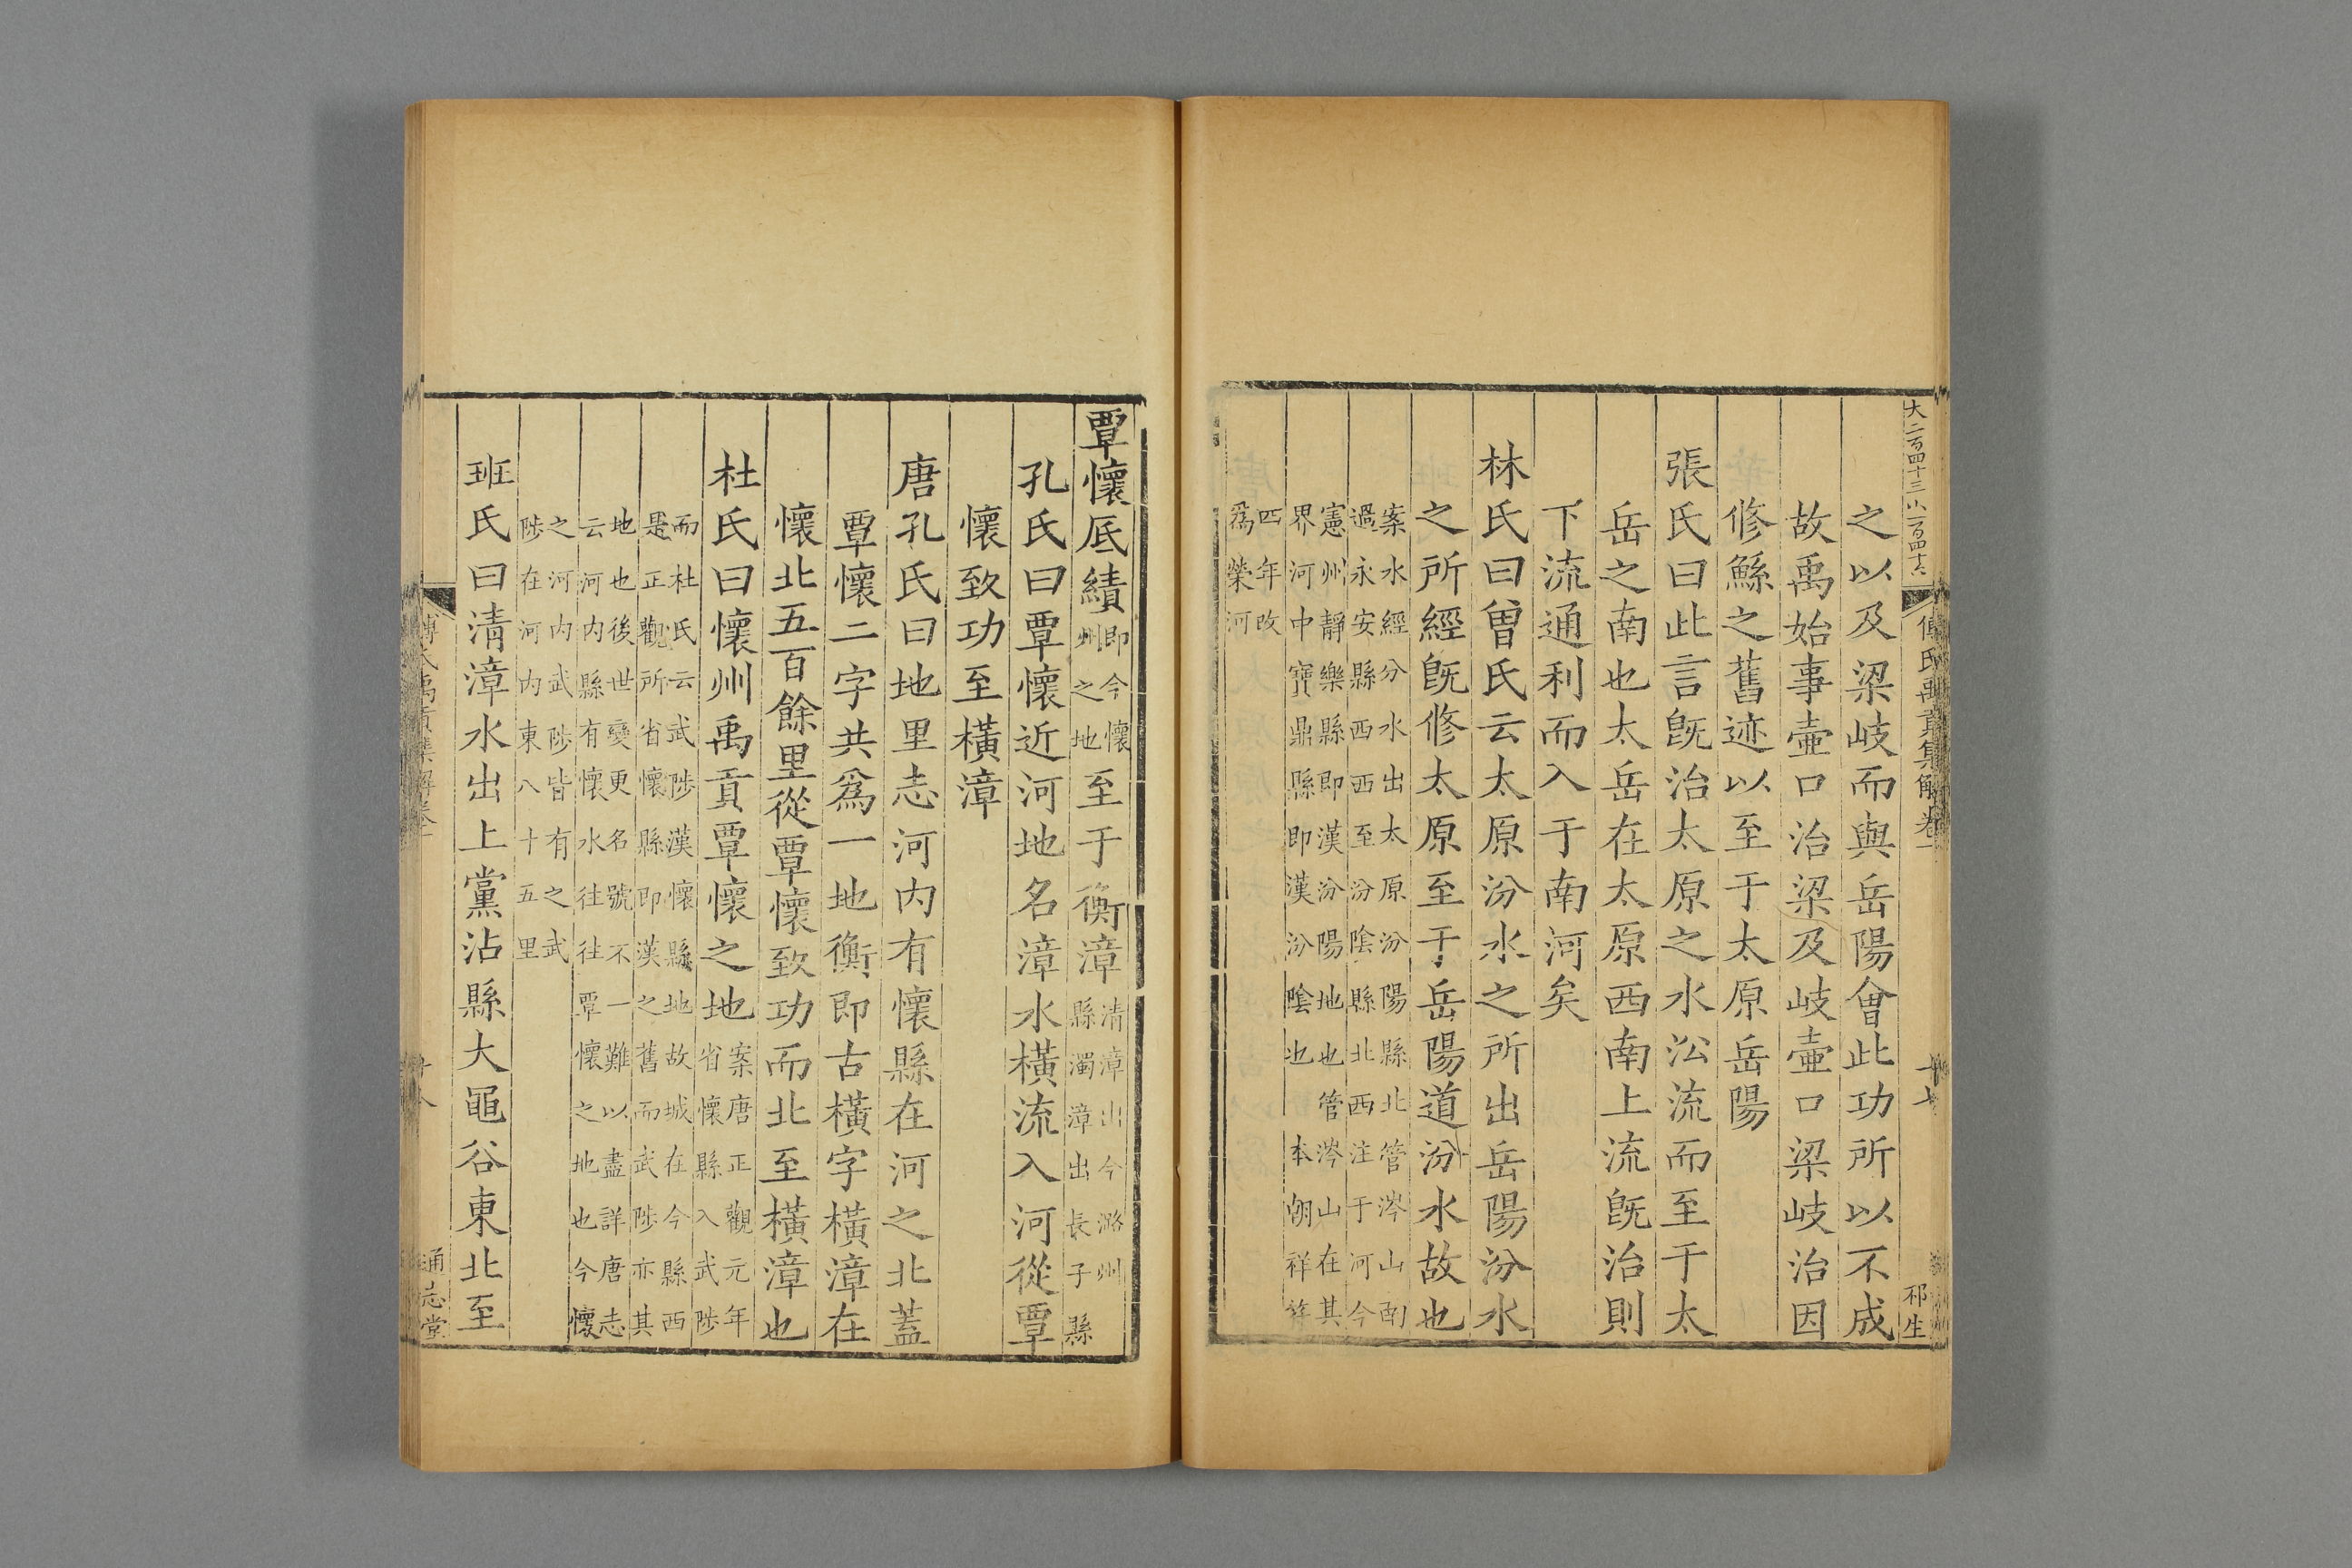 大二百四十三小一百四十六
傅氏禹貢集解卷一
十七
祁生
之以及梁岐而與岳陽會此功所以不成
故禹始事壷口治梁及岐壷口梁岐治因
修鯀之舊迹以至于太原岳陽
張氏曰此言旣治太原之水㳂流而至于太
岳之南也太岳在太原西南上流旣治則
下流通利而入于南河矣
林氏曰曽氏云太原汾水之所出岳陽汾水
之所經旣修太原至于岳陽道汾水故也
案水經分水出太原汾陽縣北管涔山西
過永安縣西西至汾陰縣北西注于河今
憲州靜樂縣即漢汾陽地也管涔山在其
界河中寶鼎縣即漢汾隂也 本朝祥符
四年改
爲榮河
覃懷厎績即今懷州之地至于衡漳清漳出今潞州縣濁漳出長子縣
孔氏曰覃懷近河地名漳水橫流入河從覃
懷致功至橫漳
唐孔氏曰地里志河内有懷縣在河之北蓋
覃懷二字共爲一地衡即古橫字橫漳在
懷北五百餘里從覃懷致功而北至橫漳也
杜氏曰懷州禹貢覃懷之地案唐正觀元年省懷縣入武陟
而杜氏云武陟漢懷縣地故城在今縣西
是正觀所省懷縣即漢之舊而武陟亦其
地也後世變更名號不一難以盡詳唐志
云河内縣有懷水往往覃懷之地也今懷
之河内武陟皆有之武
陟在河内東八十五里
班氏曰清漳水出上黨沾縣大黽谷東北至
傅氏禹貢集解卷一
十八
通志堂